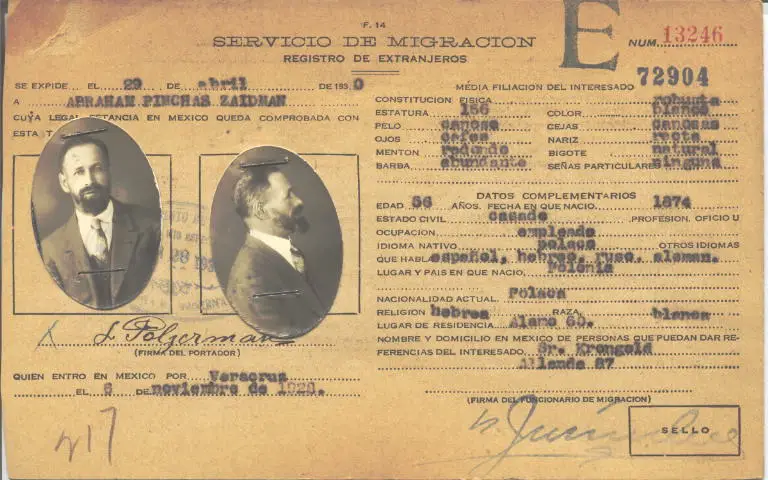 F. 14
E
SERVICIO DE MIGRACION
NUM. 13246
REGISTRO DE EXTRANJEROS
72904
SE EXPIDE EL 29 DE abril DE 1930
A ABRAHAM PINCHAS ZAIDMAN
CUYA LEGAL ESTANCIA EN MEXICO QUEDA COMPROBADA CON
ESTA T
(FIRMA DEL PORTADOR)
QUIEN ENTRO EN MEXICO POR Veracruz
EL 6 DE noviembre de 1928.
217
MEDIA FILIACION DEL INTERESADO
CONSTITUCION FISICA robusta
ESTATURA 156 COLOR blanco
PELO canoso CEJAS canosas
OJOS cafes NARIZ recta
MENTON redondo BIGOTE natural
BARBA abundante SEÑAS PARTICULARES ninguna
DATOS COMPLEMENTARIOS
EDAD 56 AÑOS. FECHA EN QUE NACIO. 1874
ESTADO CIVIL casado PROFESION, OFICIO U
OCUPACION empleado
IDIOMA NATIVO polaco OTROS IDIOMAS
QUE HABLA español, hebreo, ruso, aleman.
LUGAR Y PAIS EN QUE NACIO. Polonia
NACIONALIDAD ACTUAL. Polaca
RELIGION hebrea RAZA blanca
LUGAR DE RESIDENCIA. Alamo 60.
NOMBRE Y DOMICILIO EN MEXICO DE PERSONAS QUE PUEDAN DAR RE-
FERENCIAS DEL INTERESADO. Sr. Krongold
Allende 87
(FIRMA DEL FUNCIONARIO DE MIGRACION)
SELLO